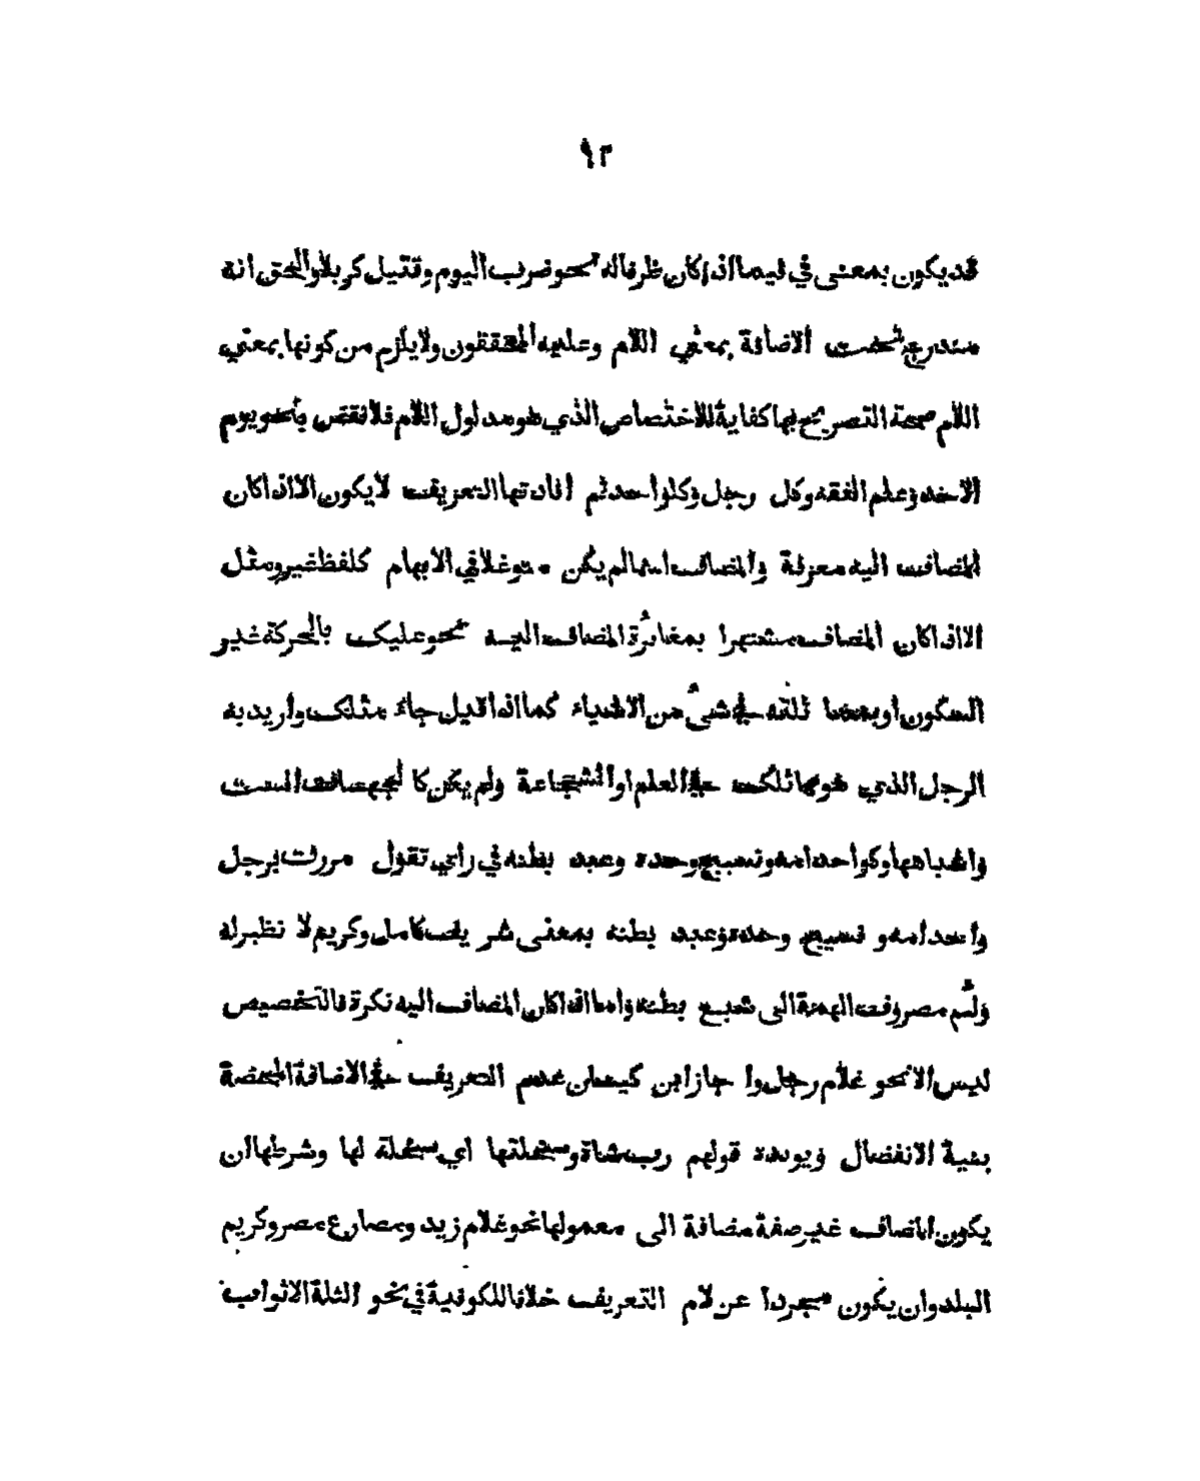 ٩٣
قد يكون بمعنى في فيما اذا كان ظرفا له نحو ضرب اليوم وقتيل كربلا والحق انه
مندرج تحت الاضافة بمعني اللام وعليه المحققون ولا يلزم من كونها بمعني
اللام صحة التصريح بها كفاية للاختصاص الذي هو مدلول اللام فلا نقض بنحو يوم
الاحد وعلم الفقه وكل رجل وكلواحد ثم افادتها التعريف لا يكون الا اذا كان
المضاف اليه معرفة والمضاف اسما لم يكن متوغلا في الابهام كلفظ غير ومثل
الا اذا كان المضاف مشتهرا بمغائرة المضاف اليه نحو عليك بالحركة غير
السكون او بمماثلته في شئ من الاشياء كما اذا قيل جاء مثلك واريد به
الرجل الذي هو مماثلك في العلم او الشجاعة ولم يكن كا لجهات الست
واشباهها وكواحد امه ونسيج وحده وعبد بطنه في راي تقول مررت برجل
واحد امه و نسيج وحده وعبد بطنه بمعنى شريف كامل وكريم لا نظير له
ولئيم مصروف الهمة الى شبع بطنه واما اذا كان المضاف اليه نكرة فالتخصيص
ليس الا نحو غلام رجل وا جاز ابن كيسان عدم التعريف في الاضافة المحضة
بنية الانفصال ويويده قولهم رب شاة وسخلتها اي سخلة لها وشرطها ان
يكون المضاف غير صفة مضافة الى معمولها نحو غلام زيد ومصارع مصر وكريم
البلد وان يكون مجردا عن لام التعريف خلافا للكوفية في نحو الثلثة الاثواب